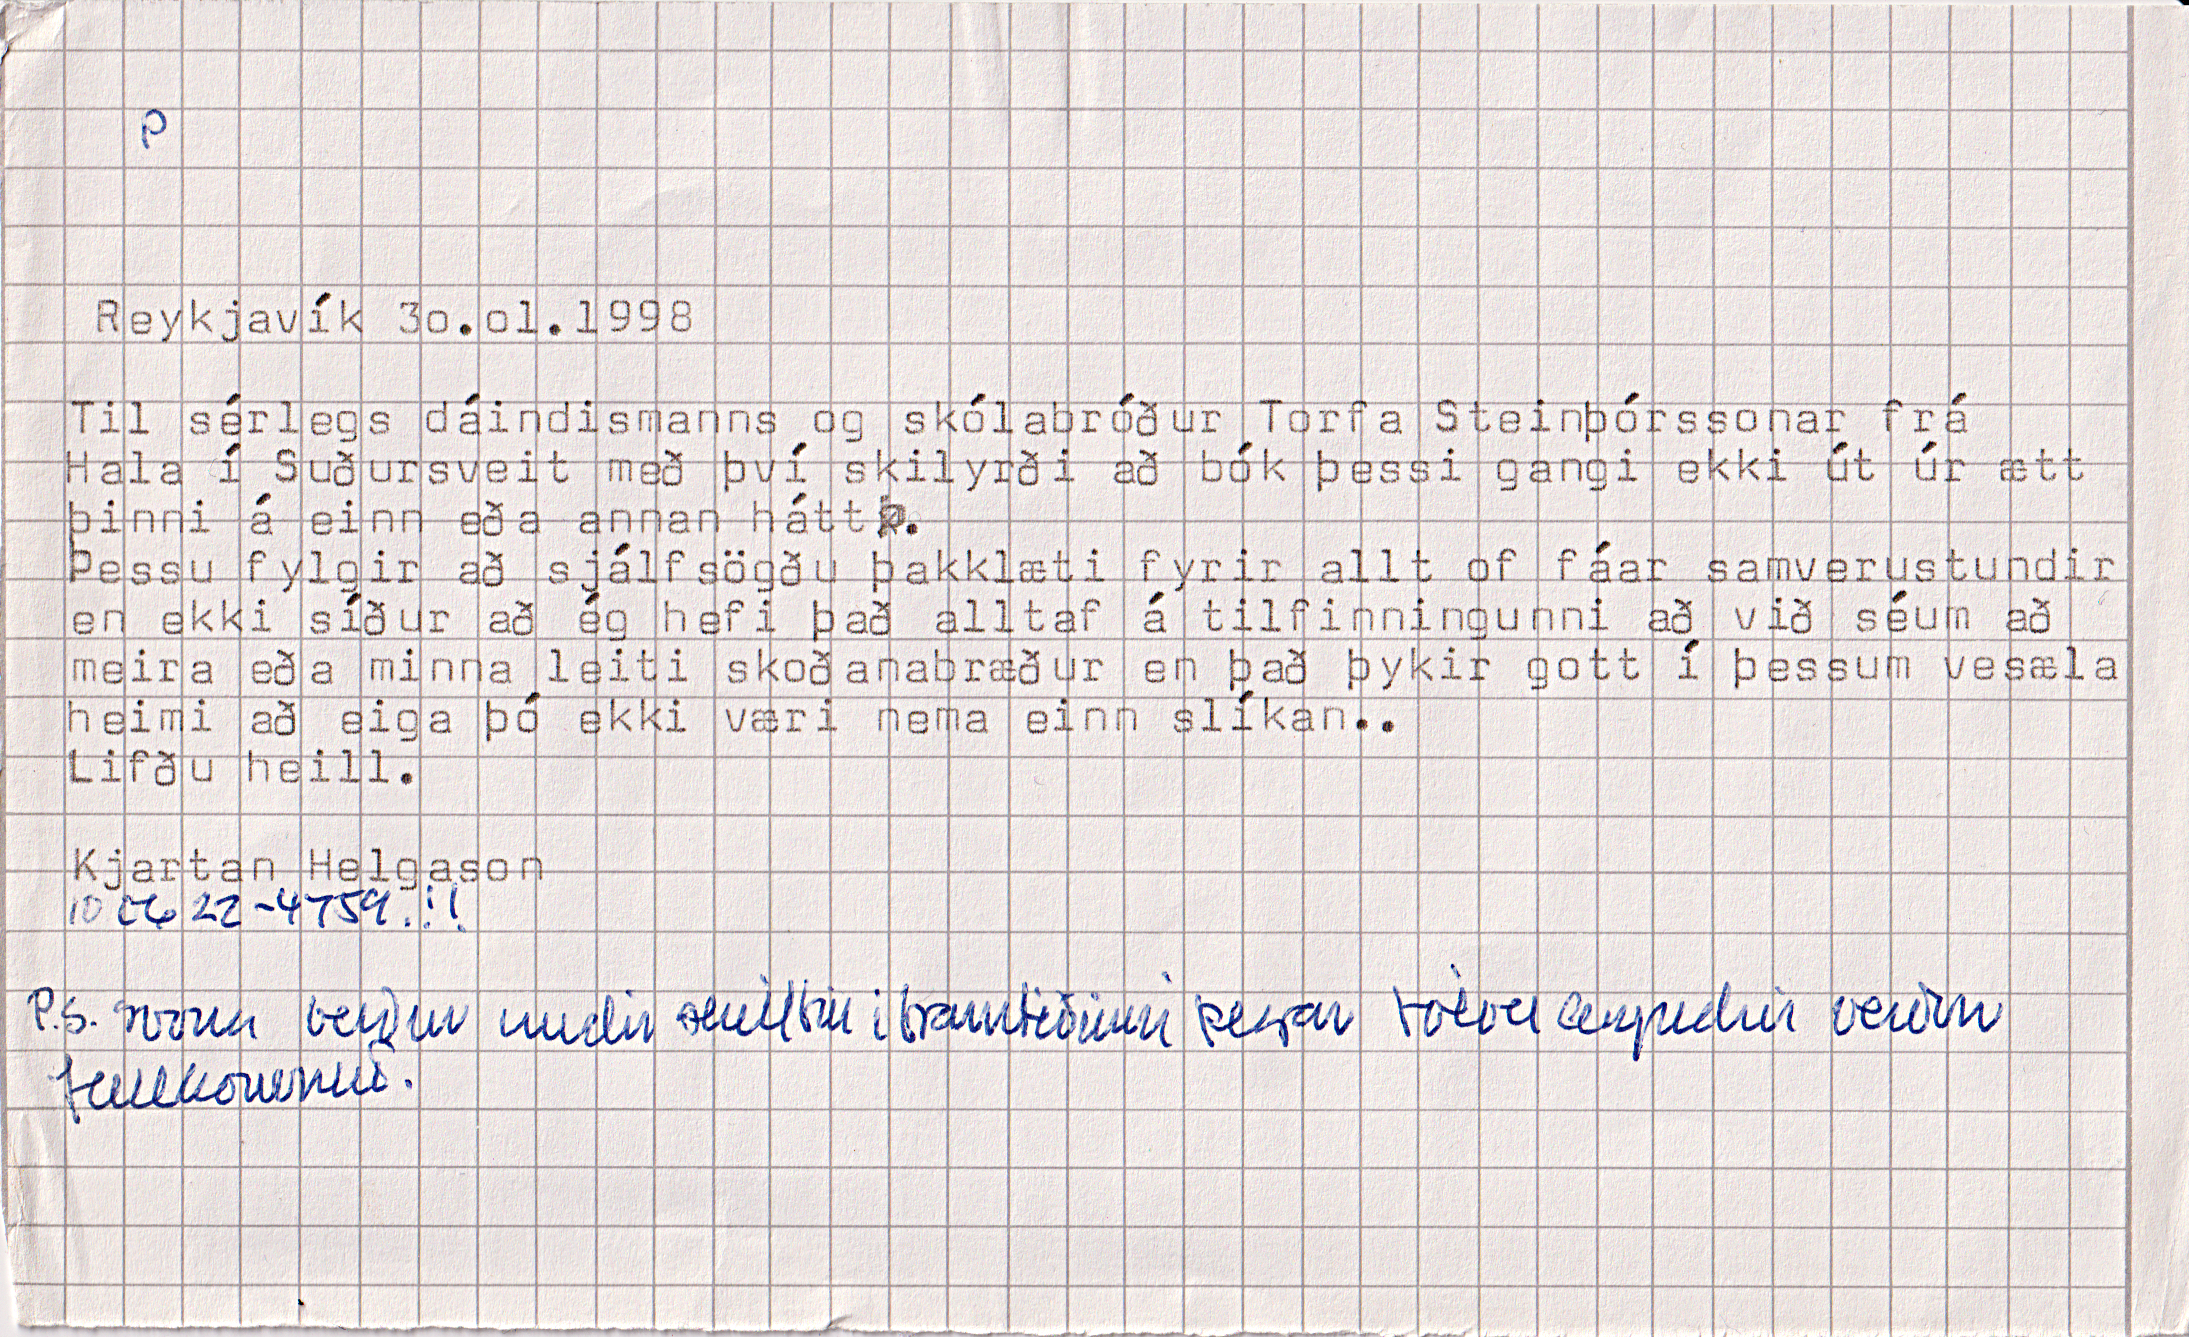 Reykjavík 3o.ol.1998
Til sérlegs dáindismanns og skólabróður Torfa Steinþórssonar frá
Hala í Suðursveit með því skilyrði að bók þessi gangi ekki út úr ætt
þinni á einn eða annan hátt.
Þessu fylgir að sjálfsögðu þakklæti fyrir allt of fáar samverustundir
en ekki síður að ég hefi það alltaf á tilfinningunni að við séum að
meira eða minna leiti skoðanabræður en það þykir gott í þessum vesæla
heimi að eiga þó ekki væri nema einn slíkan..
Lifðu heill.
Kjartan Helgason
22-4759.!!
P.S. svona verður undir í framtíðinni þegar tölvu verður
fullkomnuð.